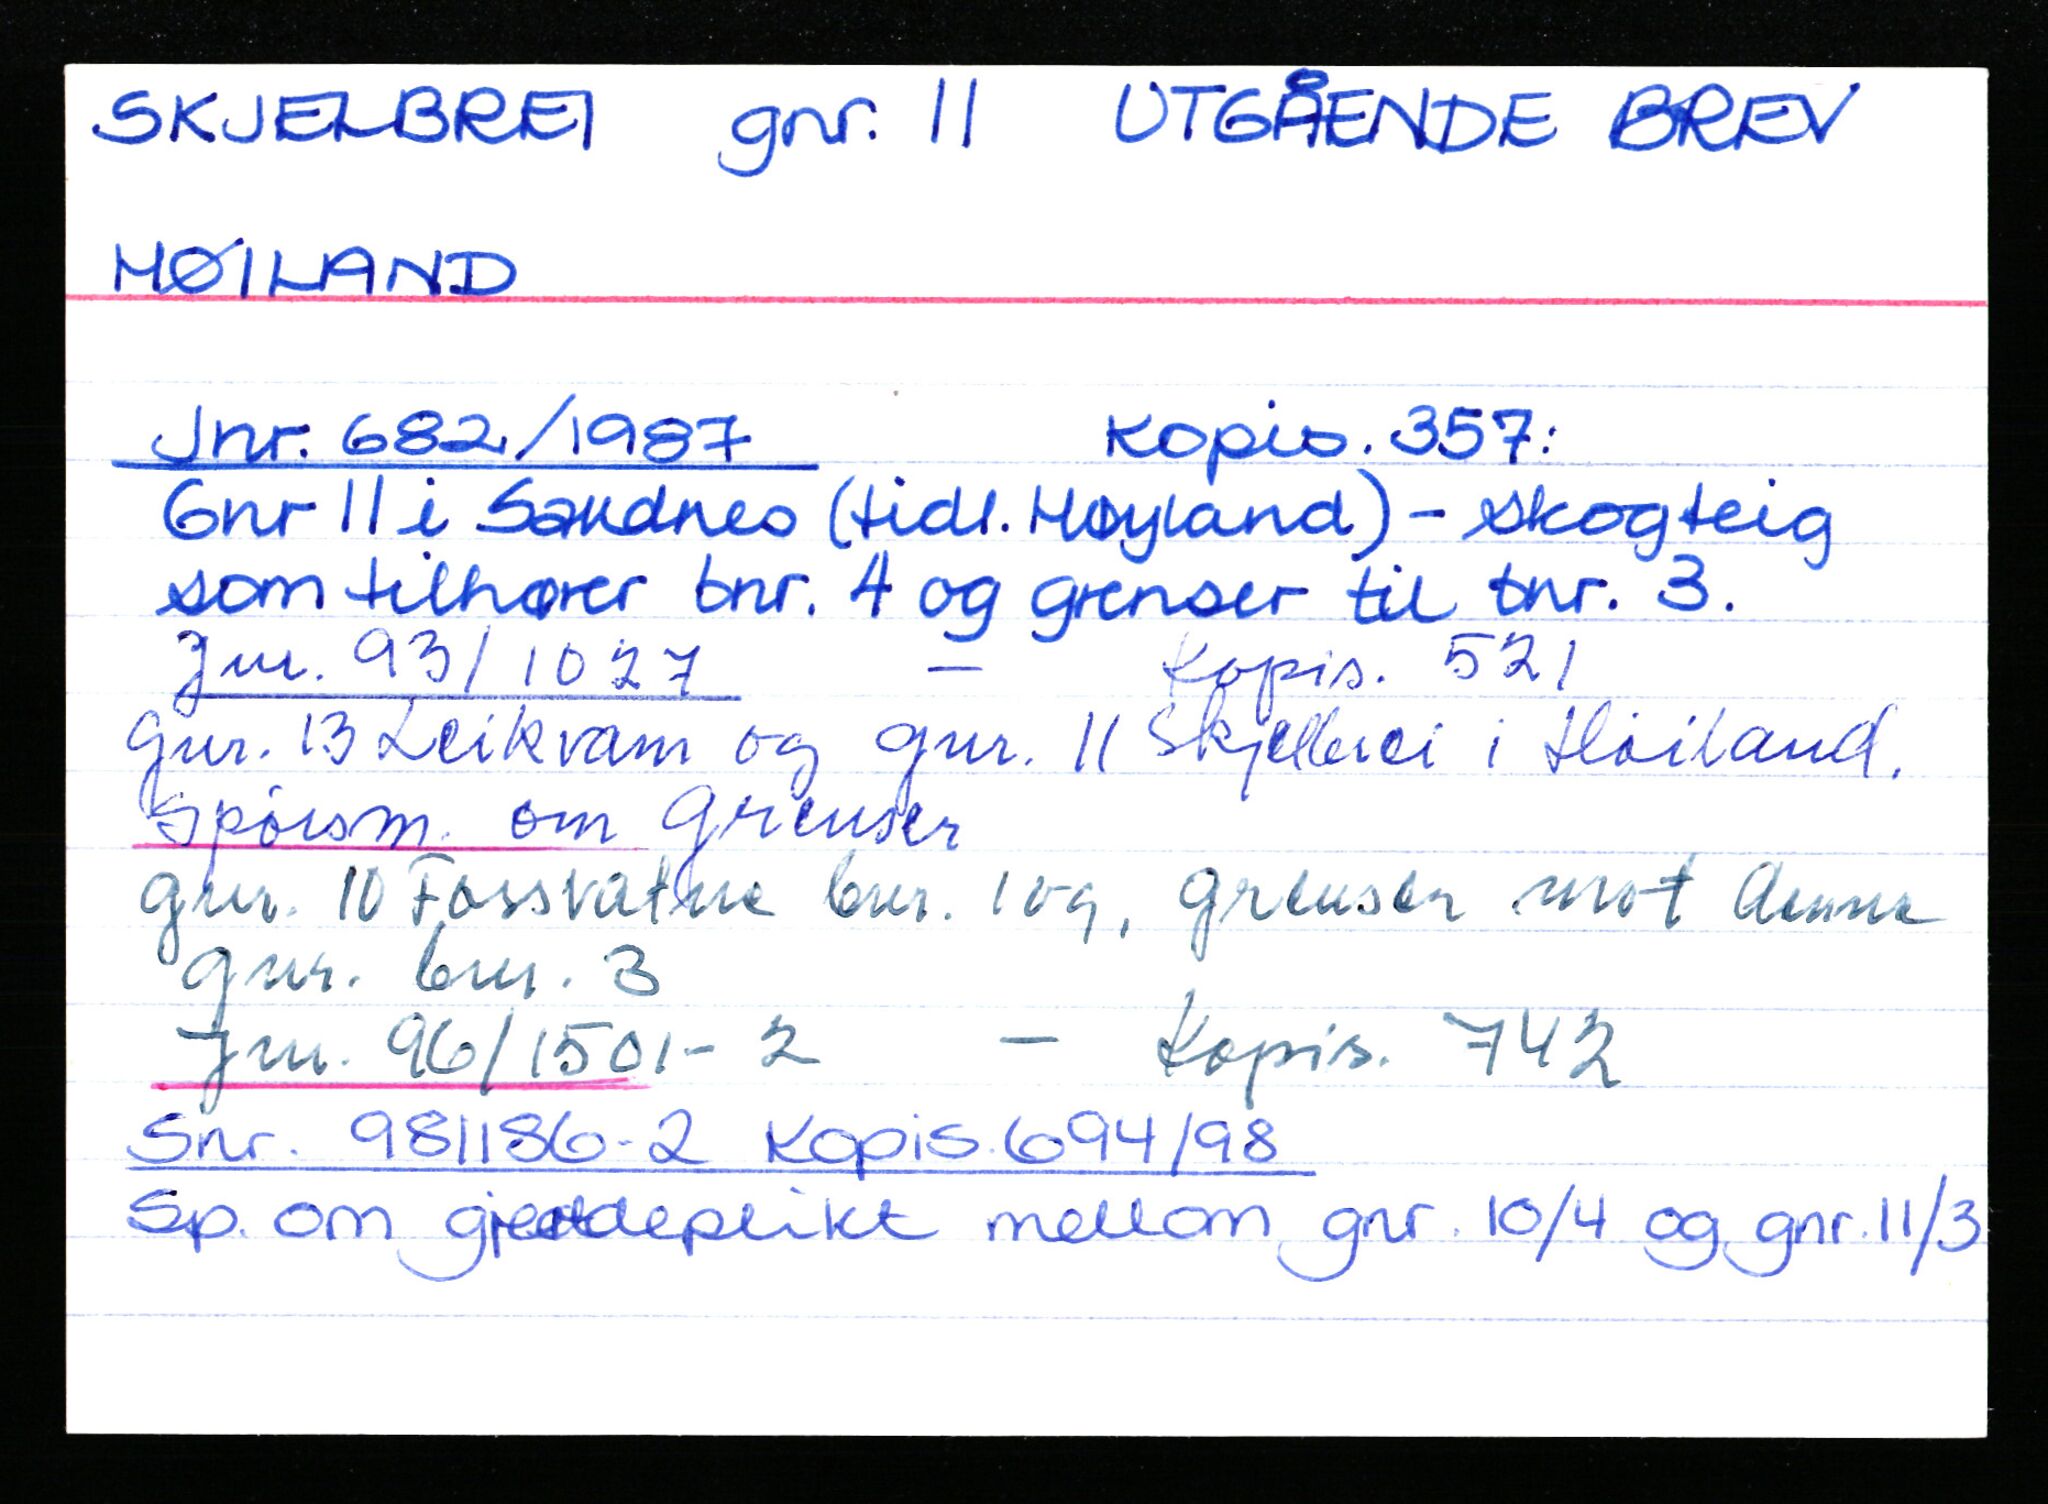 SKJELBREI gnr. 11 UTGÅENDE BREV
HØILAND
Jnr. 682/1987 Kopis. 357:
Gnr 11 i Sandnes (tidl. Høyland) - skogteig
som tilhører bnr. 4 og grenser til bnr. 3.
Jnr. 93/1027 - Kopis. 521
gnr. 13 Leikvam og gnr. 11 Skjelbrei i Høiland.
Spørsm. om grenser
gnr. 10 Fossvatne bnr. 1 og, grenser mot denne
gnr. bnr. 3
Jnr. 96/1501-2 - Kopis. 742
Snr. 981186-2 Kopis. 694/98
Sp. om gjerdeplikt mellom gnr. 10/4 og gnr. 11/3